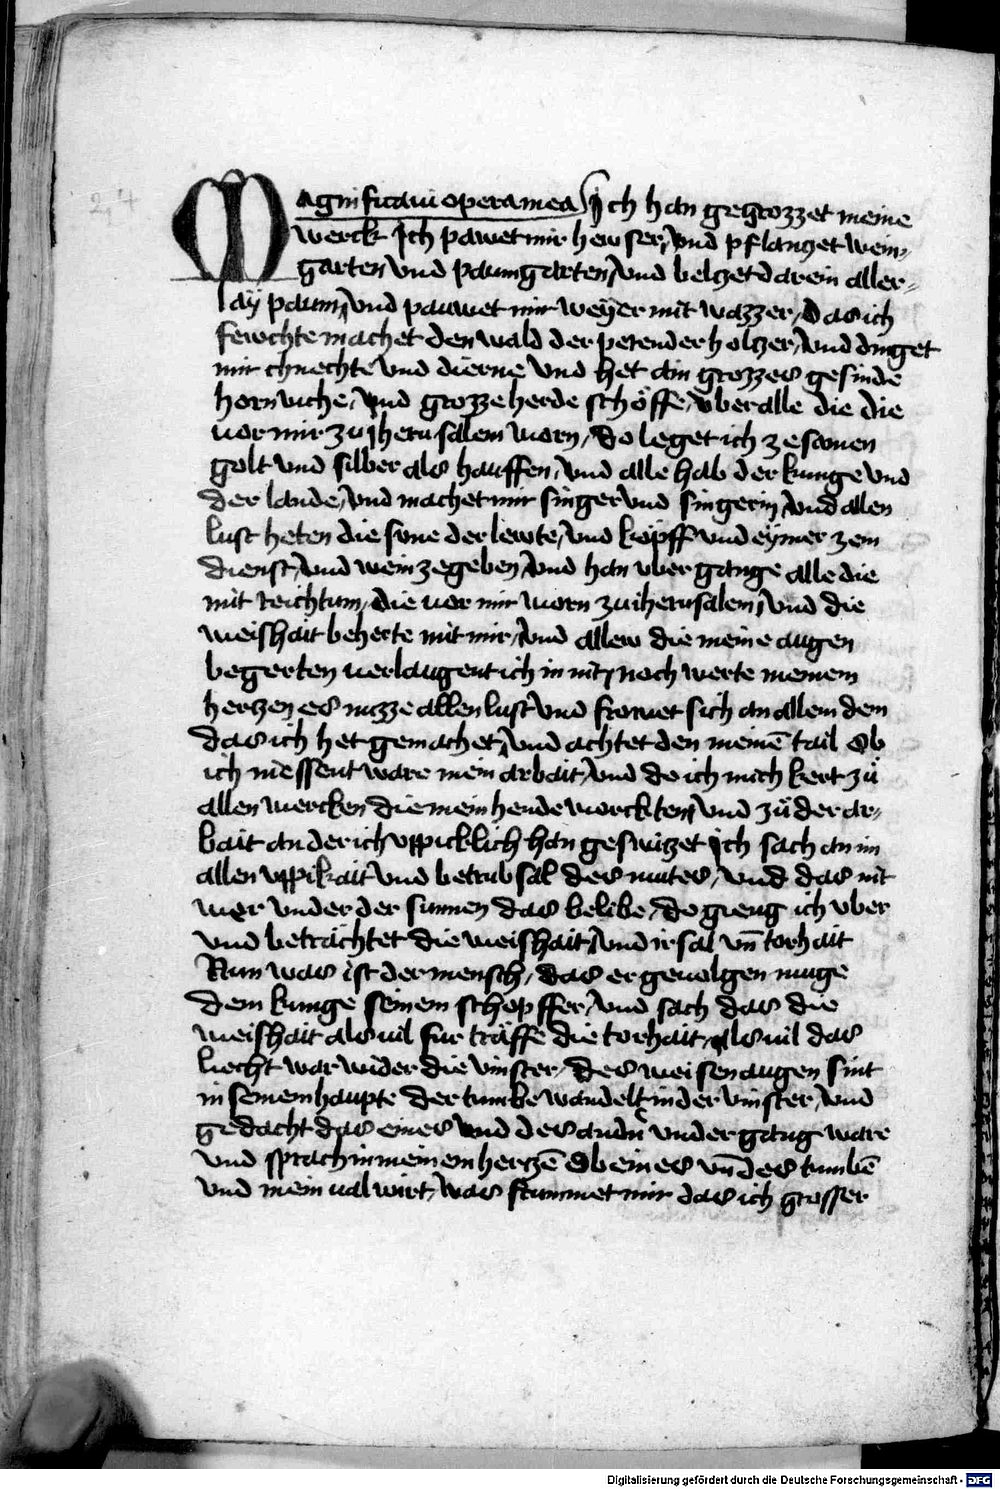 2,4
Magnificaui opera mea Ich han gegrozzet meine
werck Ich pawet mir hewser, vnd pflanczet wein-
garten vnd paumgarten, vnd belczet darein aller-
lay paum, vnd pauwet mir weyer mit wazzer, das ich
fewchte machet den wald der perender holczer, vnd dinget
mir chnechte vnd dierne vnd het ain grozzes gesinde
hornviche, vnd grozze herde schöffe, vber alle die die
uor mir zu Jherusalem worn, do leget ich zesamen
golt vnd silber als hauffen, vnd alle hab der kunige vnd
der lande, vnd machet mir singer vnd singerin, vnd allen
lust heten die sone der lewte, vnd köpff vnd eymer zem
dienst, vnd wein zegeben, vnd han vbergange alle die
mit reichtum, die uor mir worn zu iherusalem, vnd die
weishait beherte mit mir, vnd allew die meine augen
begerten uerlaugent ich in nit, noch werte meinem
herczen es nuzze allen lust vnd frowet sich an allem dem
das ich het gemachet, vnd achtet den meinē tail Ob
ich niessent ware mein arbait, vnd do ich mich kert zů
allen wercken die mein hende worckten, vnd zů der ar-
bait an der ich vppicklich han geswiczet Ich sach an im
allen vppikait vnd betrubsal des mutes, vnd das nit
wer vnder der sunnen das belibe, do gieng ich vber
vnd betrachtet die weishait, vnd irsal vn̄ torhait
Nun was ist der mensch, das er geuolgen muge
dem kunge seinem schopffer, vnd sach das die
weishait als uil fur träffe die torhait, als uil das
liecht war wider die vinster, des weisen augen sint
in seinem haupte der tumbe wandelt in der vinster, vnd
gedacht das eines vnd des andn̄ vndergang ware
vnd sprach in meinem herczē Ob eines vn̄ des tumbē
vnd mein ual wirt, was frummet mir das ich grosser
Digitalisierung gefördert durch die Deutsche Forschungsgemeinschaft - DFG